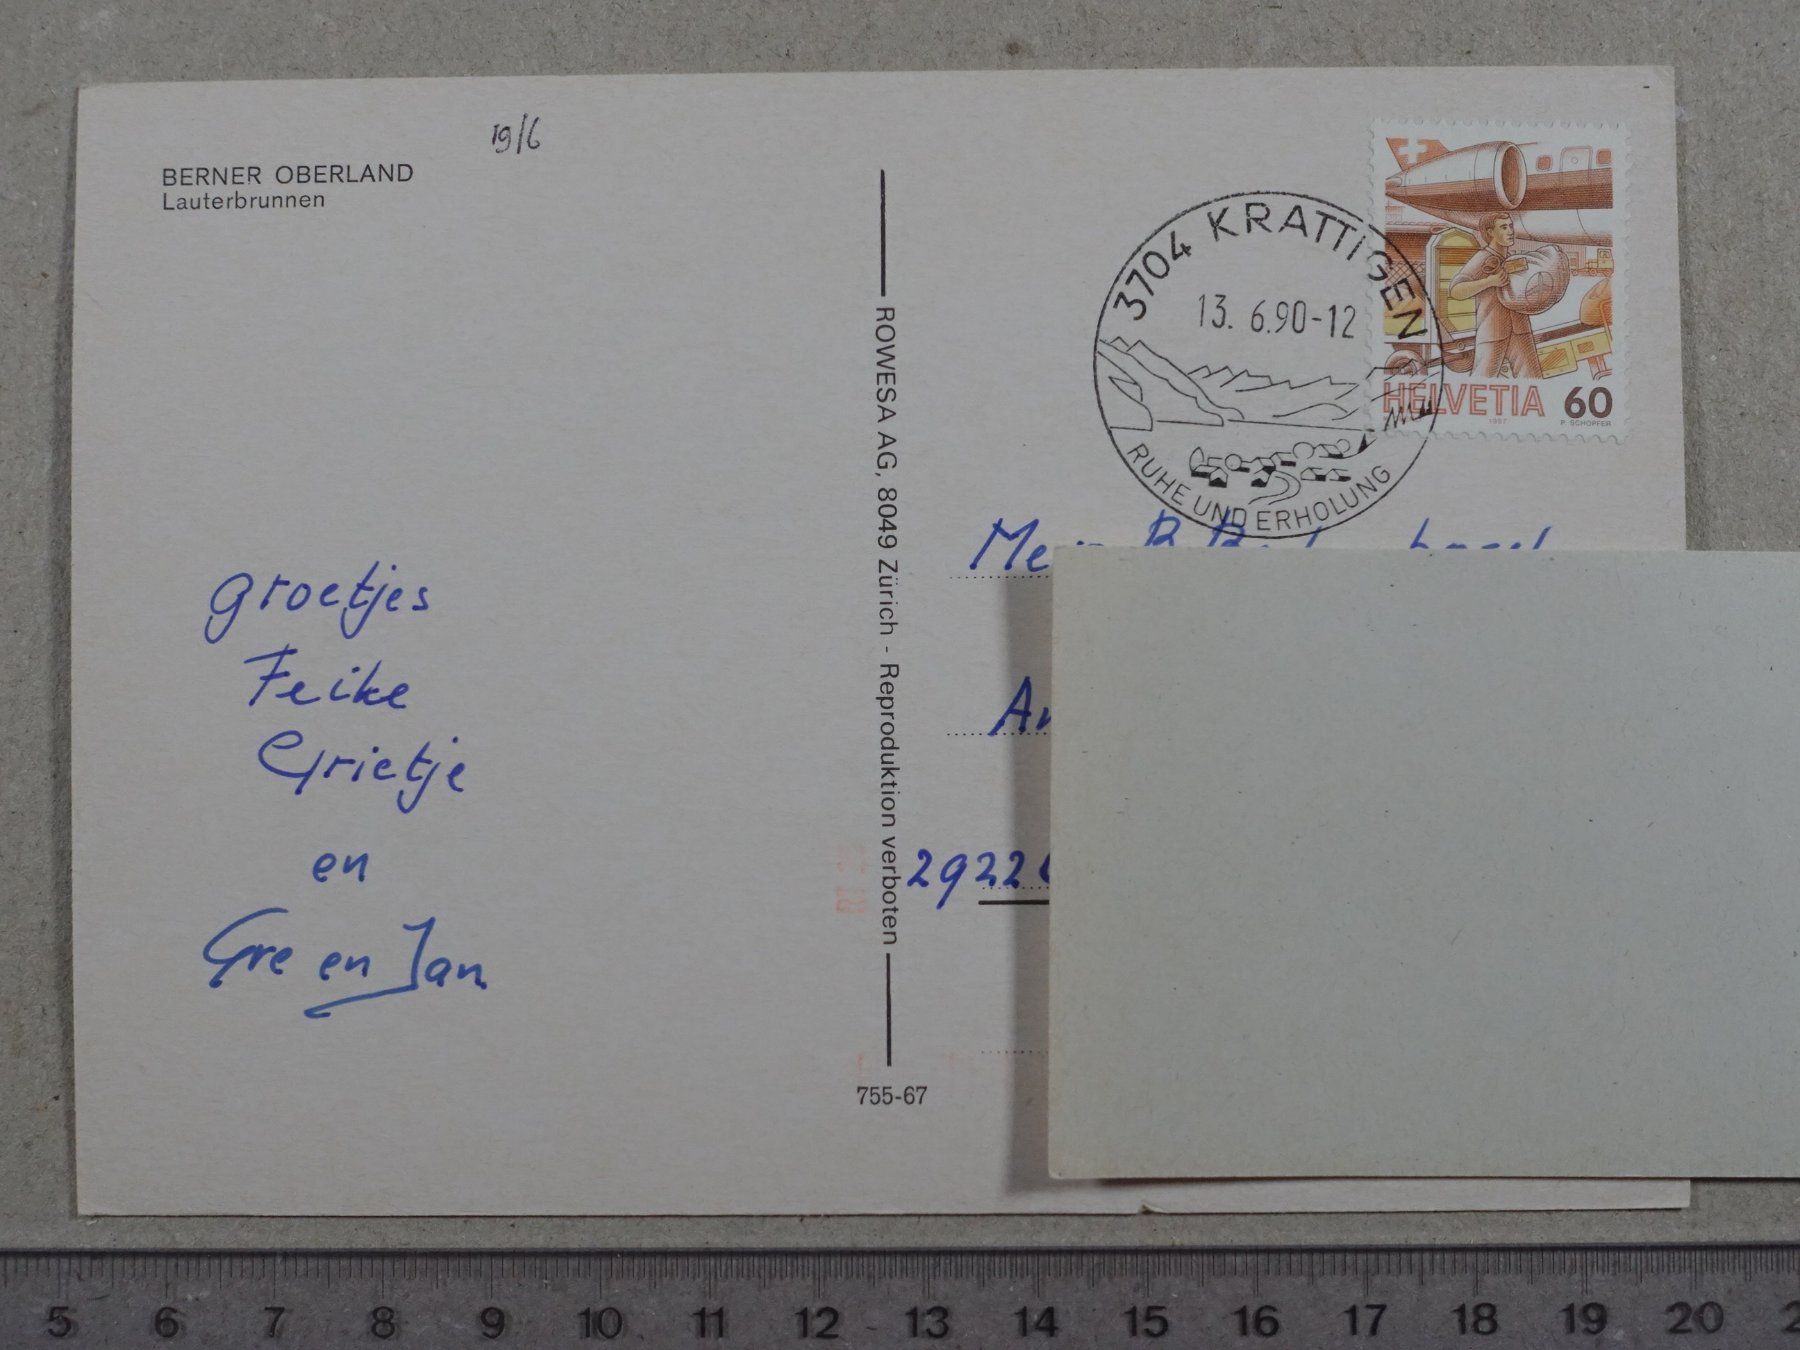 19/6
BERNER OBERLAND
Lauterbrunnen
groetjes
Feike
Grietje
en
Gre en Jan
ROWESA AG, 8049 Zürich - Reproduktion verboten
755-67
3704 KRATTIGEN
13. 6.90-12
RUHE UND ERHOLUNG
HELVETIA 60
1987 P. SCHOPFER
2922
5 6 7 8 9 10 11 12 13 14 15 16 17 18 19 20